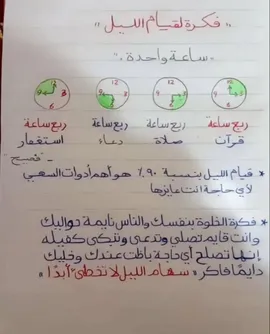 „ فكرة لقيام الليل "
„ ساعة واحدة "
12 3 6 9 12 3 6 9 12 3 6 9 12 3 6 9
ربع ساعة ربع ساعة ربع ساعة ربع ساعة
قرآن صلاة دعاء استغفار
* قيام الليل بنسبة ٩٠٪ هو أهم أدوات السعي
لأي حاجة انت عايزها
* فكرة الخلوة بنفسك والناس نايمة حواليك
وانت قايم تصلي وتدعي وتبكي كفيله
إنها تصلح أي حاجة باظت عندك وخليك
دايمًا فاكر « سهام الليل لا تخطئ أبدًا »